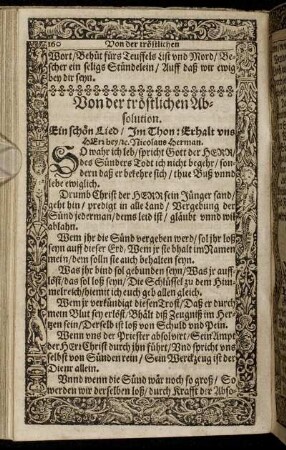 160 Von der tröstlichen
Wort / Behüt fürs Teuffels List vnd Mord / Be-
scher ein seligs Stündelein / Auff daß wir ewig
bey dir seyn.
Von der tröstlichen Ab-
solution.
Ein schön Lied / Im Thon: Erhalt vns
HErr bey / ꝛc. Nicolaus Herman.
SO wahr ich leb / spricht Gott der HERR /
des Sünders Todt ich nicht begehr / son-
dern daß er bekehre sich / thue Buß vnnd
lebe ewiglich.
Drumb Christ der HERR sein Jünger sand /
geht hin / predigt in alle Land / Vergebung der
Sünd jederman / dems leid ist / gläubt vnnd wil
ablahn.
Wem jhr die Sünd vergeben werd / sol jhr loß
seyn auff dieser Erd. Wem jr sie bhalt im Namen
mein / dem solln sie auch behalten seyn.
Was jhr bind sol gebunden seyn / Was jr auff-
löst / das sol loß seyn / Die Schlüssel zu dem Him-
melreich / hiemit ich euch geb allen gleich.
Wem jr verkündigt diesen Trost / Daß er durch
mein Blut sey erlöst / Bhält diß Zeugniß im Her-
tzen sein / Derselb ist loß von Schuld vnd Pein.
Wenn vns der Priester absolvirt / Sein Ampt
der HErr Christ durch jhn führt / Vnd spricht vns
selbst von Sünden rein / Sein Werckzeug ist der
Diener allein.
Vnnd wenn die Sünd wär noch so groß / So
werden wir derselben loß / durch Krafft der Abso-